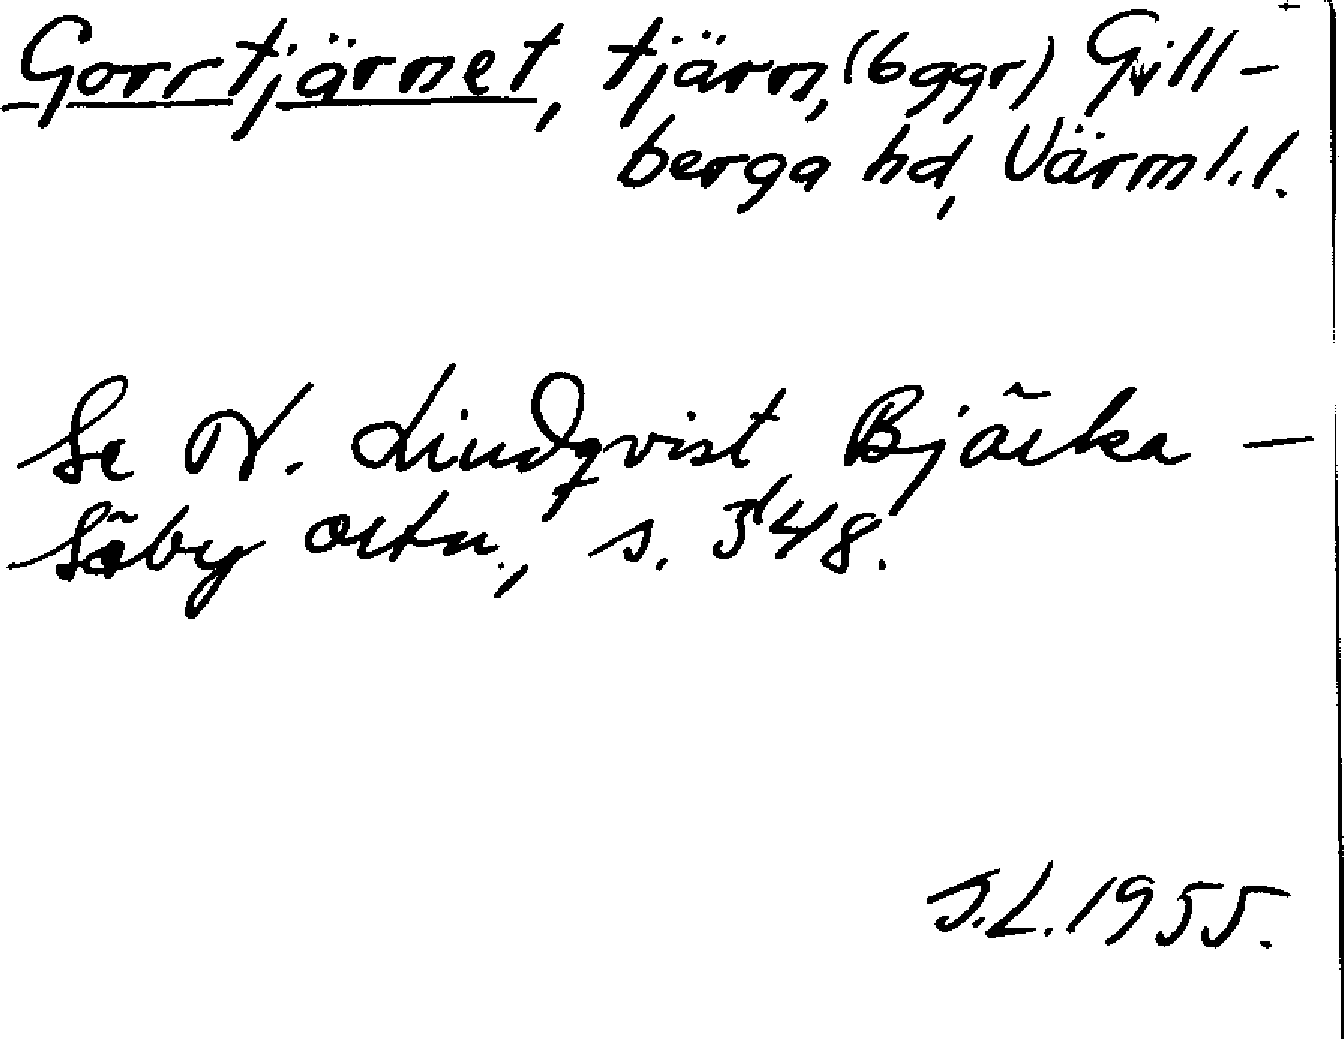 Gorrtjärnet, tjärn, (bggr) Gill-
berga hd, Värml. l.
Se N. Lindqvist, Bjärka-
Säby ortn., s. 348.
S.L. 1955.